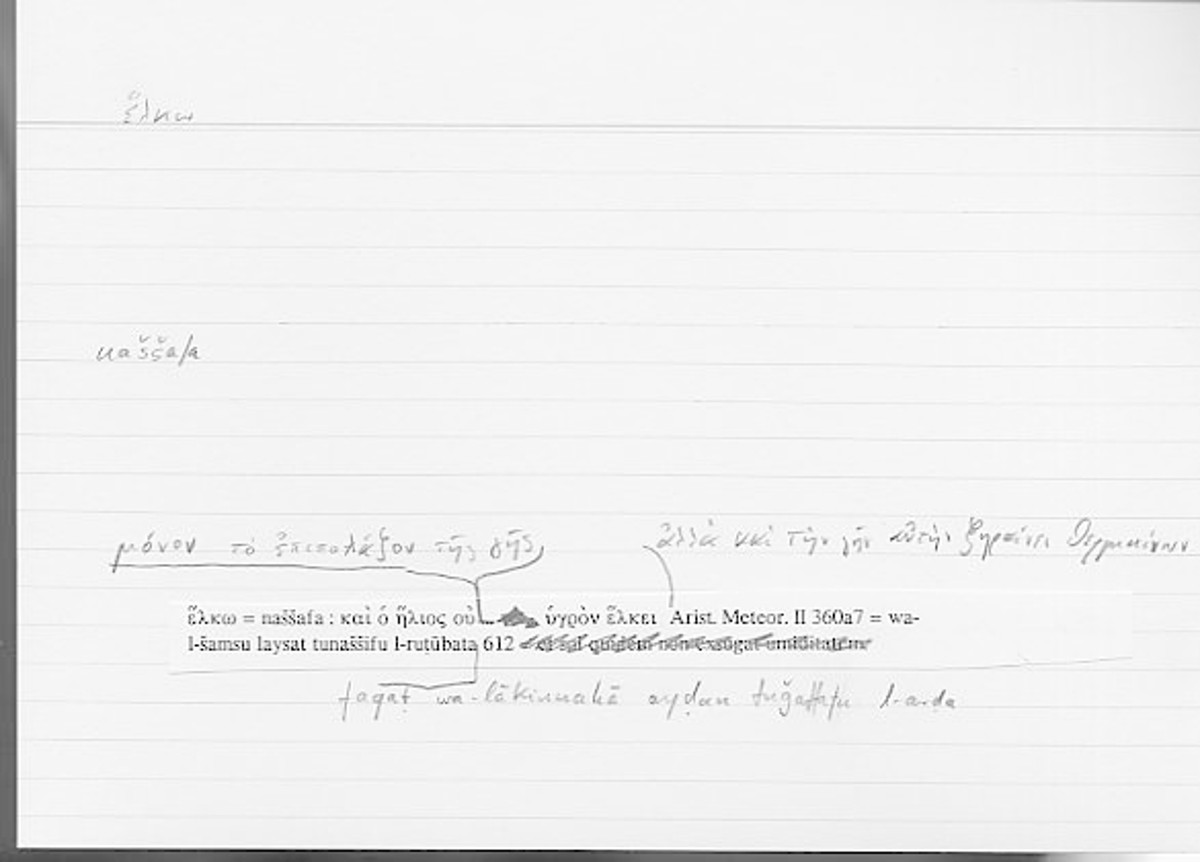 ἕλκω
naššafa
μόνον τὸ ἐπιπολάζον τῆς γῆς ἀλλὰ καὶ τὴν γῆν αὐτὴν ξηραίνει θερμαίνων
ἕλκω = naššafa : καὶ ὁ ἥλιος οὐ ὑγρὸν ἕλκει Arist. Meteor. II 360a7 = wa-
l-šamsu laysat tunaššifu l-ruṭūbata 612 non exsugat umiditatem
faqaṭ wa-lākinnahā ayḍan tuǧaffifu l-arḍa